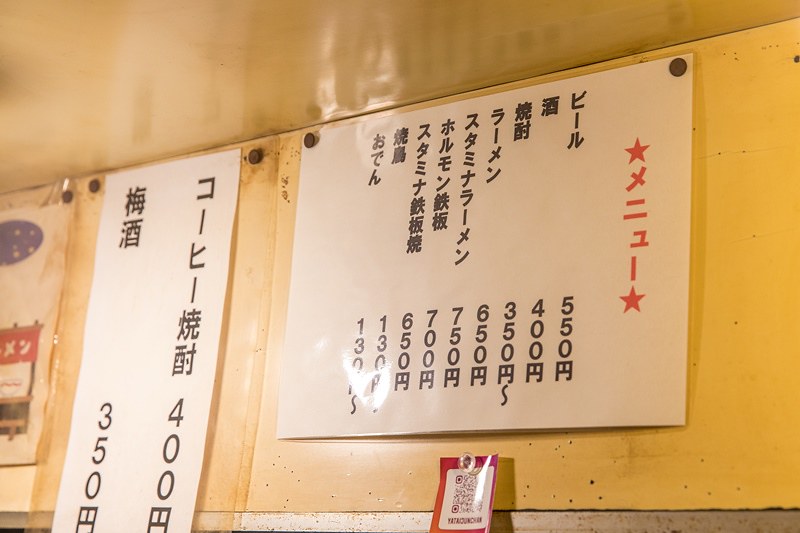 ★メニュー★
ビール 550円
酒 400円
焼酎 350円～
ラーメン 650円
スタミナラーメン 750円
ホルモン鉄板 700円
スタミナ鉄板焼 650円
焼鳥 130円～
おでん 130円～
コーヒー焼酎 400円
梅酒 350円
メン
YATAIJUNCHAN